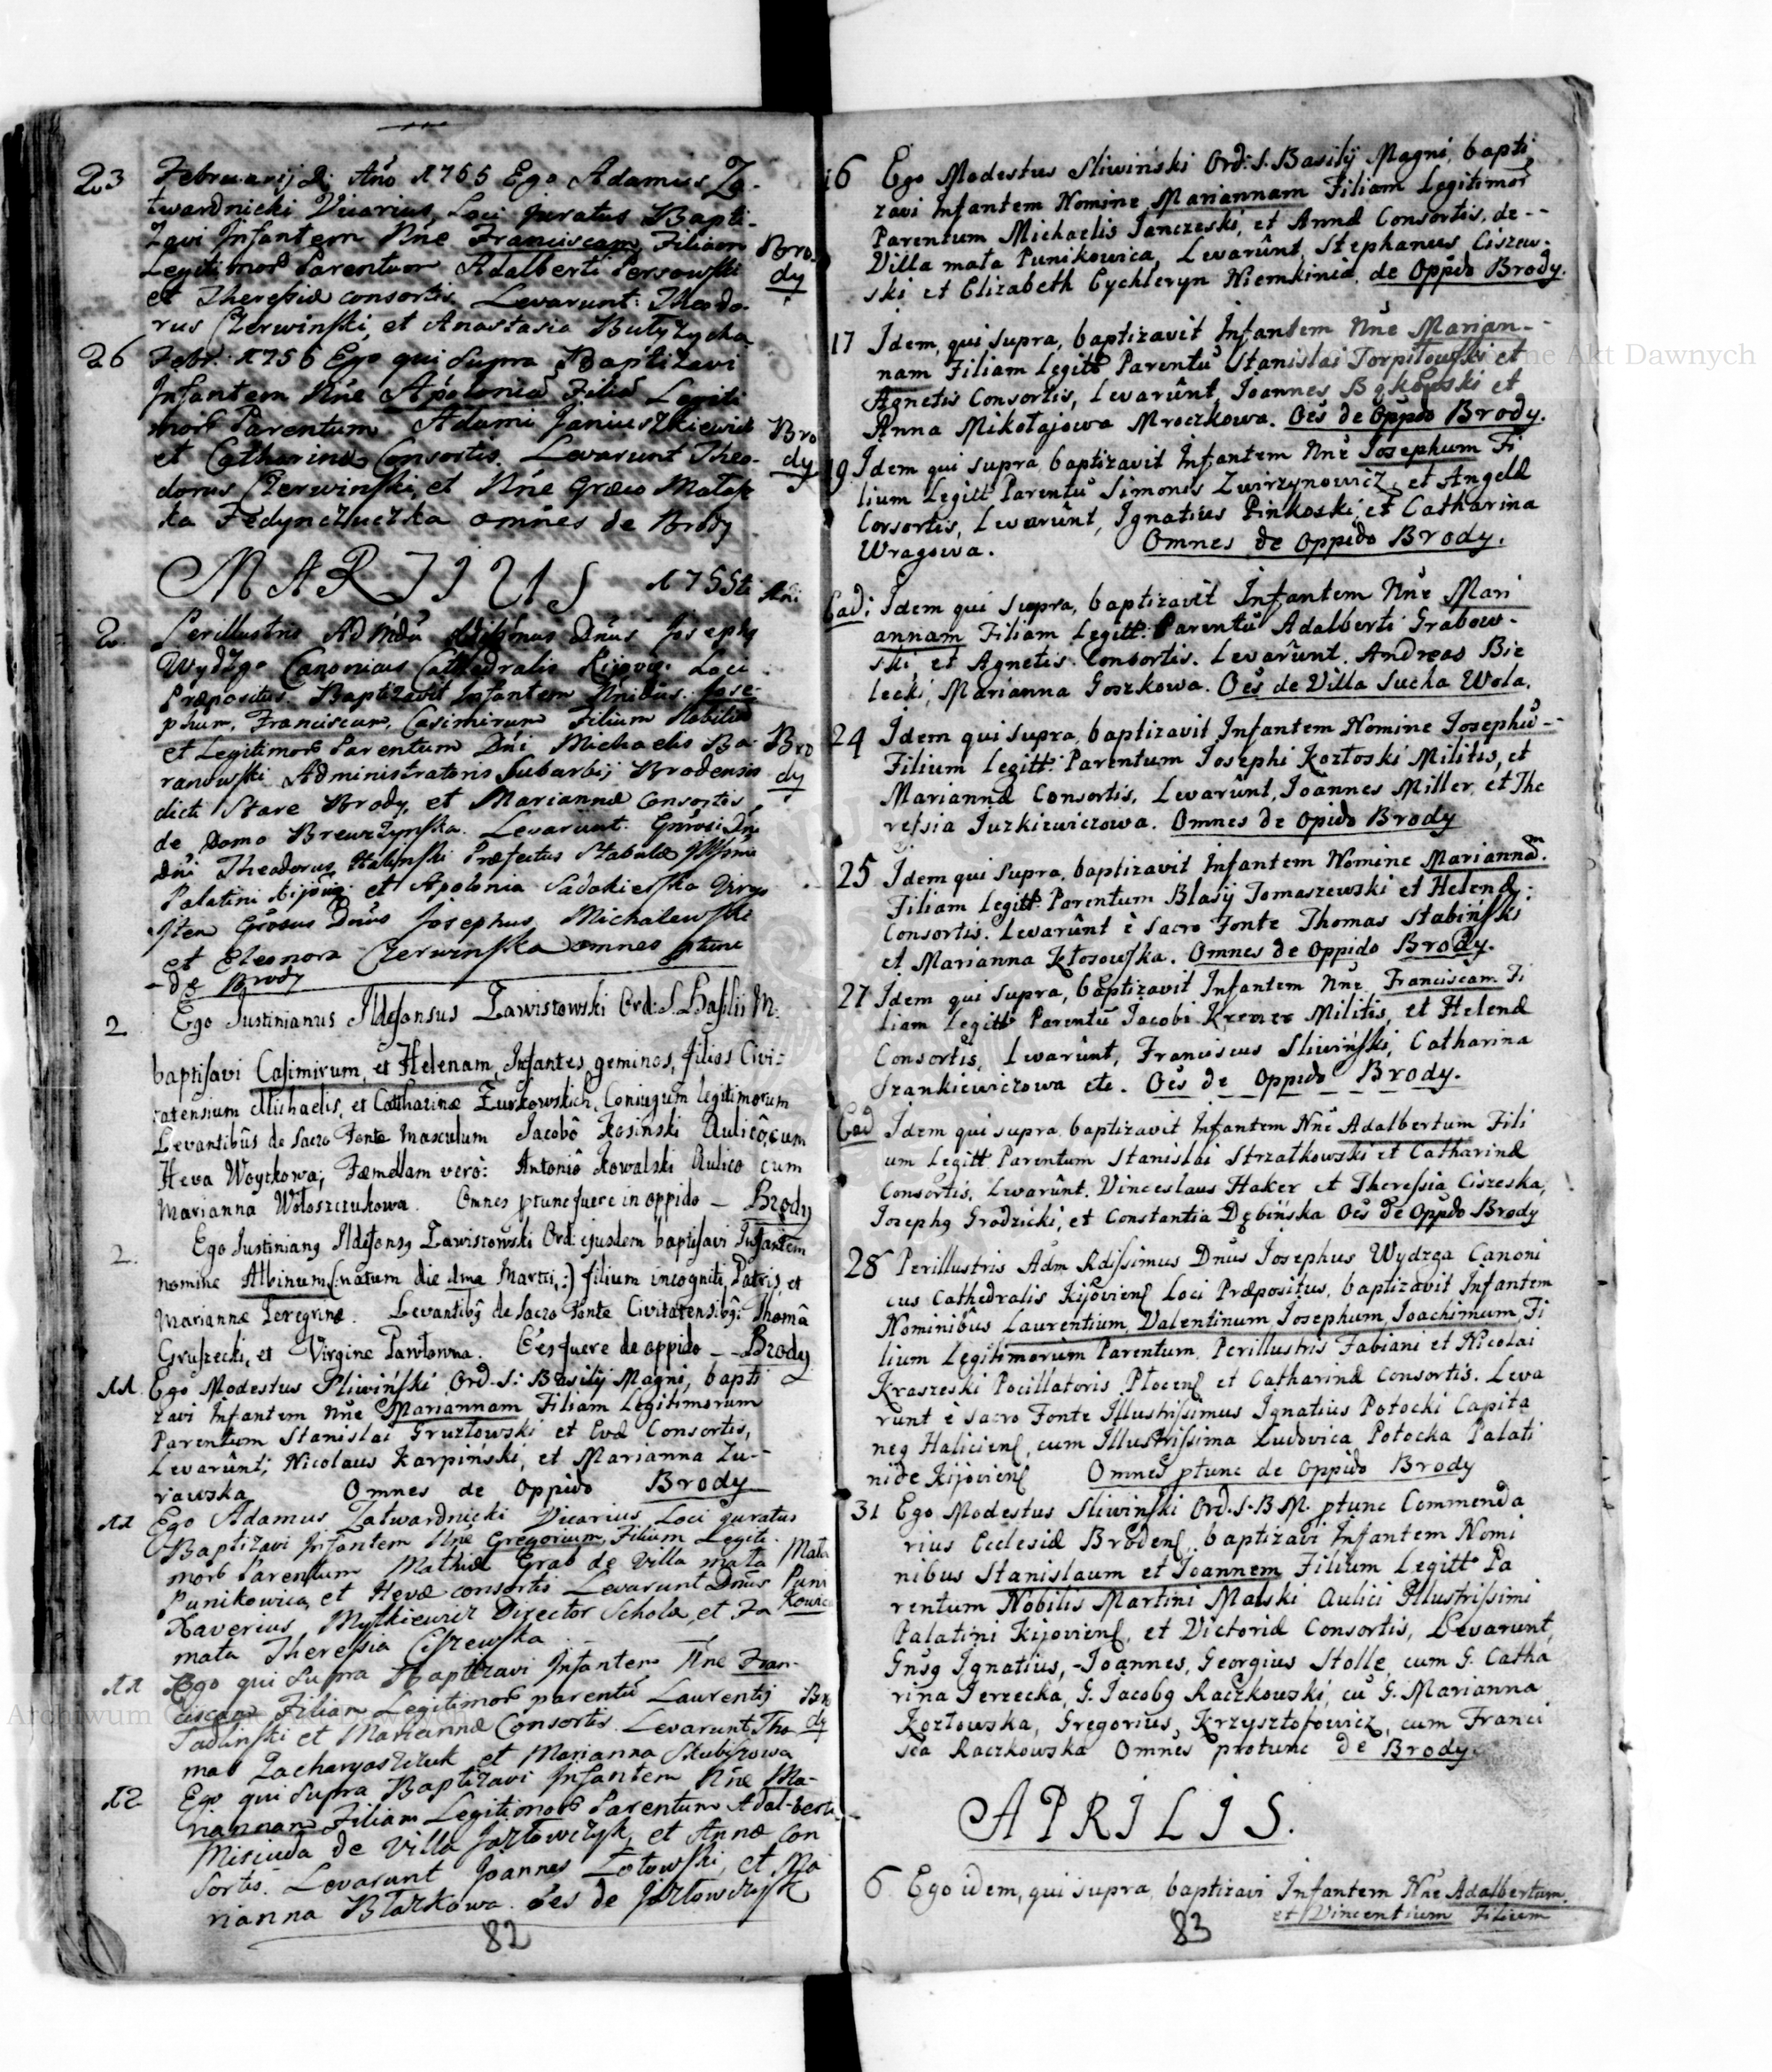 23 Februarij D: Año 1755 Ego Adamus Za-
twardnicki Vicarius Loci Juratus Bapti-
zavi Infantem Nne Franciscam Filiam
Legitimor Parentum Adalberti Persowski
Bro-
dy
et Theressiæ consortis Levarunt: Theodo-
rus Czerwinski, et Anastasia
26 Febr: 1755 Ego qui Supra Baptizavi
Infantem Nne Apolonia Filia Legiti
mor Parentum Adami Januszkiewicz
et Catharinæ Consortis. Levarunt Theo-
Bro
dy
dorus Czerwinski, et Nne Græco
ka Fedynczuczka omnes de Brody
MARTIUS 1755ti Ani
2. Perillustris Adm Josephg
Wydzga Canonicus Cathedralis Kijovien. Loci
Præpositus. Baptizavit Infantem Nnibus: Jose-
phum, Franciscum, Casimirum Filium Nobiliu
et Legitimor Parentum Dni Michaelis Ba-
Bro
dy
ranowski Administratoris Suburbij Brodensis
dicti Stare Brody, et Mariannæ Consortis
de Domo Brewczynska. Levarunt:
Dni Theodorus Præfectus Stabulæ
Palatini Kijovien: et Apolonia Virgo
Item Grosus Dnus Josephus Michalewski
et Eleonora Czerwinska omnes ptunc
- de Brody
2 Ego Justinianus Ildefonsus Zawistowski Ord: S. Basilii M.
baptisavi Casimirum, et Helenam, Infantes geminos, filios Civi-
tatensium Michaelis, et Catharinæ Zurkowskich, Coniugum legitimorum
Levantibûs de Sacro Fonte Masculum Jacobô Kosinski Aulicô, cum
Heva Woyckowa; Fæmellam verò: Antoniô Kowalski Aulico cum
Marianna Wołoszczukowa. Omnes ptunc fuere in oppido - Brody
2. Ego Justiniang Ildefonsg Zawistowski Ord: ejusdem baptisavi Infantem
nomine Albinum (: natum die 1ma Martii :) filium incogniti Patris, et
Mariannæ Peregrinæ. Levantibg de Sacro Fonte Civitatensibg: Thomâ
Gruszecki, et Virgine Pawłowna. Oes fuere de oppido -- Brody
11. Ego Modestus Sliwiński Ord. S: Basilij Magni, bapti
zavi Infantem Nne Mariannam Filiam Legitimorum
Parentum Stanislai Gruzłowski et Evæ Consortis,
Levarûnt; Nicolaus Karpiński, et Marianna Zu-
rawska Omnes de Oppido Brody
11 Ego Adamus Zatwardnicki Vicarius Loci Juratus
Baptizavi Infantem Nne Gregorium Filium Legiti-
mor Parentum Mathiæ Grab de Villa mała
Mała
Puni
kowica
Punikowica, et Hevæ consortis Levarunt Dnus
Xaverius Mytkiewicz Director Scholæ, et Fa
mata Theressia Ciszewska
11 Ego qui Supra Baptizavi Infantem Nne Fran-
ciscam Filiam Legitimor parentũ Laurentij
Bro
dy
Sadlinski et Mariannæ Consortis. Levarunt Tho
mas Zacharyaszczuk et Marianna Skubiszowa
12 Ego qui Supra Baptizavi Infantem Nne Ma-
riannam Filiam Legitimor Parentum Adal-berti
Misiuda de Villa Jazłowczyk, et Annæ Con
sortis. Levarunt Joannes Zołowski, et Ma
rianna Błazkowa. oes de Jazłowczyk
82
16 Ego Modestus Sliwiński Ord: S. Basilij Magni, bapti
zavi Infantem Nomine Mariannam Filiam Legitimor
Parentum Michaelis Janczeski, et Annæ Consortis. de --
Villa mała Punikowica, Levarûnt, Stephanus Ciszew-
ski et Elizabeth Cychleryn Niemkinia. de Oppido Brody.
17 Idem, qui supra, baptizavit Infantem Nne Marian--
nam Filiam Legitt Parentũ Stanislai Torpiłowski et
Agnetis Consortis, Levarûnt, Joannes Bąkowski et
Anna Mikołajowa Mroczkowa. Oes de Oppdo Brody.
19. Idem qui supra baptizavit Infantem Nne Josephum Fi
lium Legitt Parentũ Simonis Zwirzynowicz, et Angelæ
Corsortis, Levarûnt, Ignatius Pinkoski, et Catharina
Wragowa. Omnes de Oppido Brody.
Ead: Idem qui supra, baptizavit Infantem Nne Mari
annam Filiam Legitt: Parentũ Adalberti Grabow-
ski, et Agnetis. Consortis. Levarûnt. Andreas Bie
lecki, Marianna Goszkowa. Oes de Villa Sucha Wola.
24 Idem qui supra, baptizavit Infantem Nomine Josephũ --
Filium Legitt: Parentum Josephi Kozłoski Militis, et
Mariannæ Consortis, Levarûnt, Joannes Miller, et The
ressia Juzkiewiczowa. Omnes de Opido Brody
25 Idem qui Supra, baptizavit Infantem Nomine Mariannam.
Filiam Legitt: Parentum Blasij Tomaszewski et Helenæ.
Consortis. Levarûnt è Sacro Fonte Thomas Stabiński
et Marianna Kłosowska. Omnes de Oppido Brody.
27 Idem qui supra, baptizavit Infantem Nne Franciscam Fi
liam Legitt Parentũ Jacobi Kremer Militis, et Helenæ
Consortis, Levarûnt, Franciscus Sliwiński, Catharina
Frankiewiczowa etc. Oes de Oppido Brody.
Ead Idem qui supra. baptizavit Infantem Nne Adalbertum Fili
um Legitt Parentum Stanislai Strzałkowski et Catharinæ
Consortis. Levarûnt. Vinceslaus Haker et Theressia Ciszeska,
Josephg Grodzicki, et Constantia Dębińska Oes de Oppdo Brody
28 Perillustris Adm Rdissimus Dnus Josephus Wydzga Canoni
cus Cathedralis Kijovien Loci Præpositus, baptizavit Infantem
Nominibûs Laurentium, Valentinum, Josephum, Joachimum, Fi
lium Legitimorum Parentum, Perillustris Fabiani et Nicolai
Kraszeski Pocillatoris Płocen et Catharinæ Consortis. Leva
runt è Sacro Fonte Illustrissimus Ignatius Potocki Capita
neg Halicien, cum Illustrissima Ludovica Potocka Palati
nide Kijovien Omnes ptunc de Oppido Brody
31 Ego Modestus Sliwinski Ord. S. B. M. ptunc Commenda
rius Ecclesiæ Broden, baptizavi Infantem Nomi
nibus Stanislaum et Joannem Filium Legitt Pa
rentum Nobilis Martini Malski Aulici Illustrissimi
Palatini Kijovien, et Victoriæ Consortis, Levarunt,
Gnsg Ignatius, Joannes, Georgius Stolle, cum G. Catha
rina Jerzecka, G. Jacobg Raczkowski, cũ G. Marianna
Kozłowska, Gregorius, Krzysztofowicz, cum Franci
sca Raczkowska Omnes protunc de Brody.
APRILIS.
6 Ego idem, qui supra, baptizavi Infantem Nne Adalbertum.
et Vincentium Filium
83